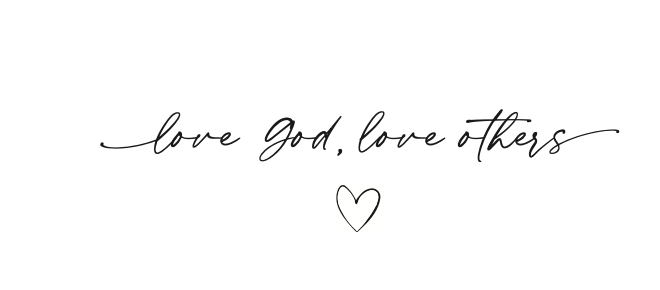 love God, love others